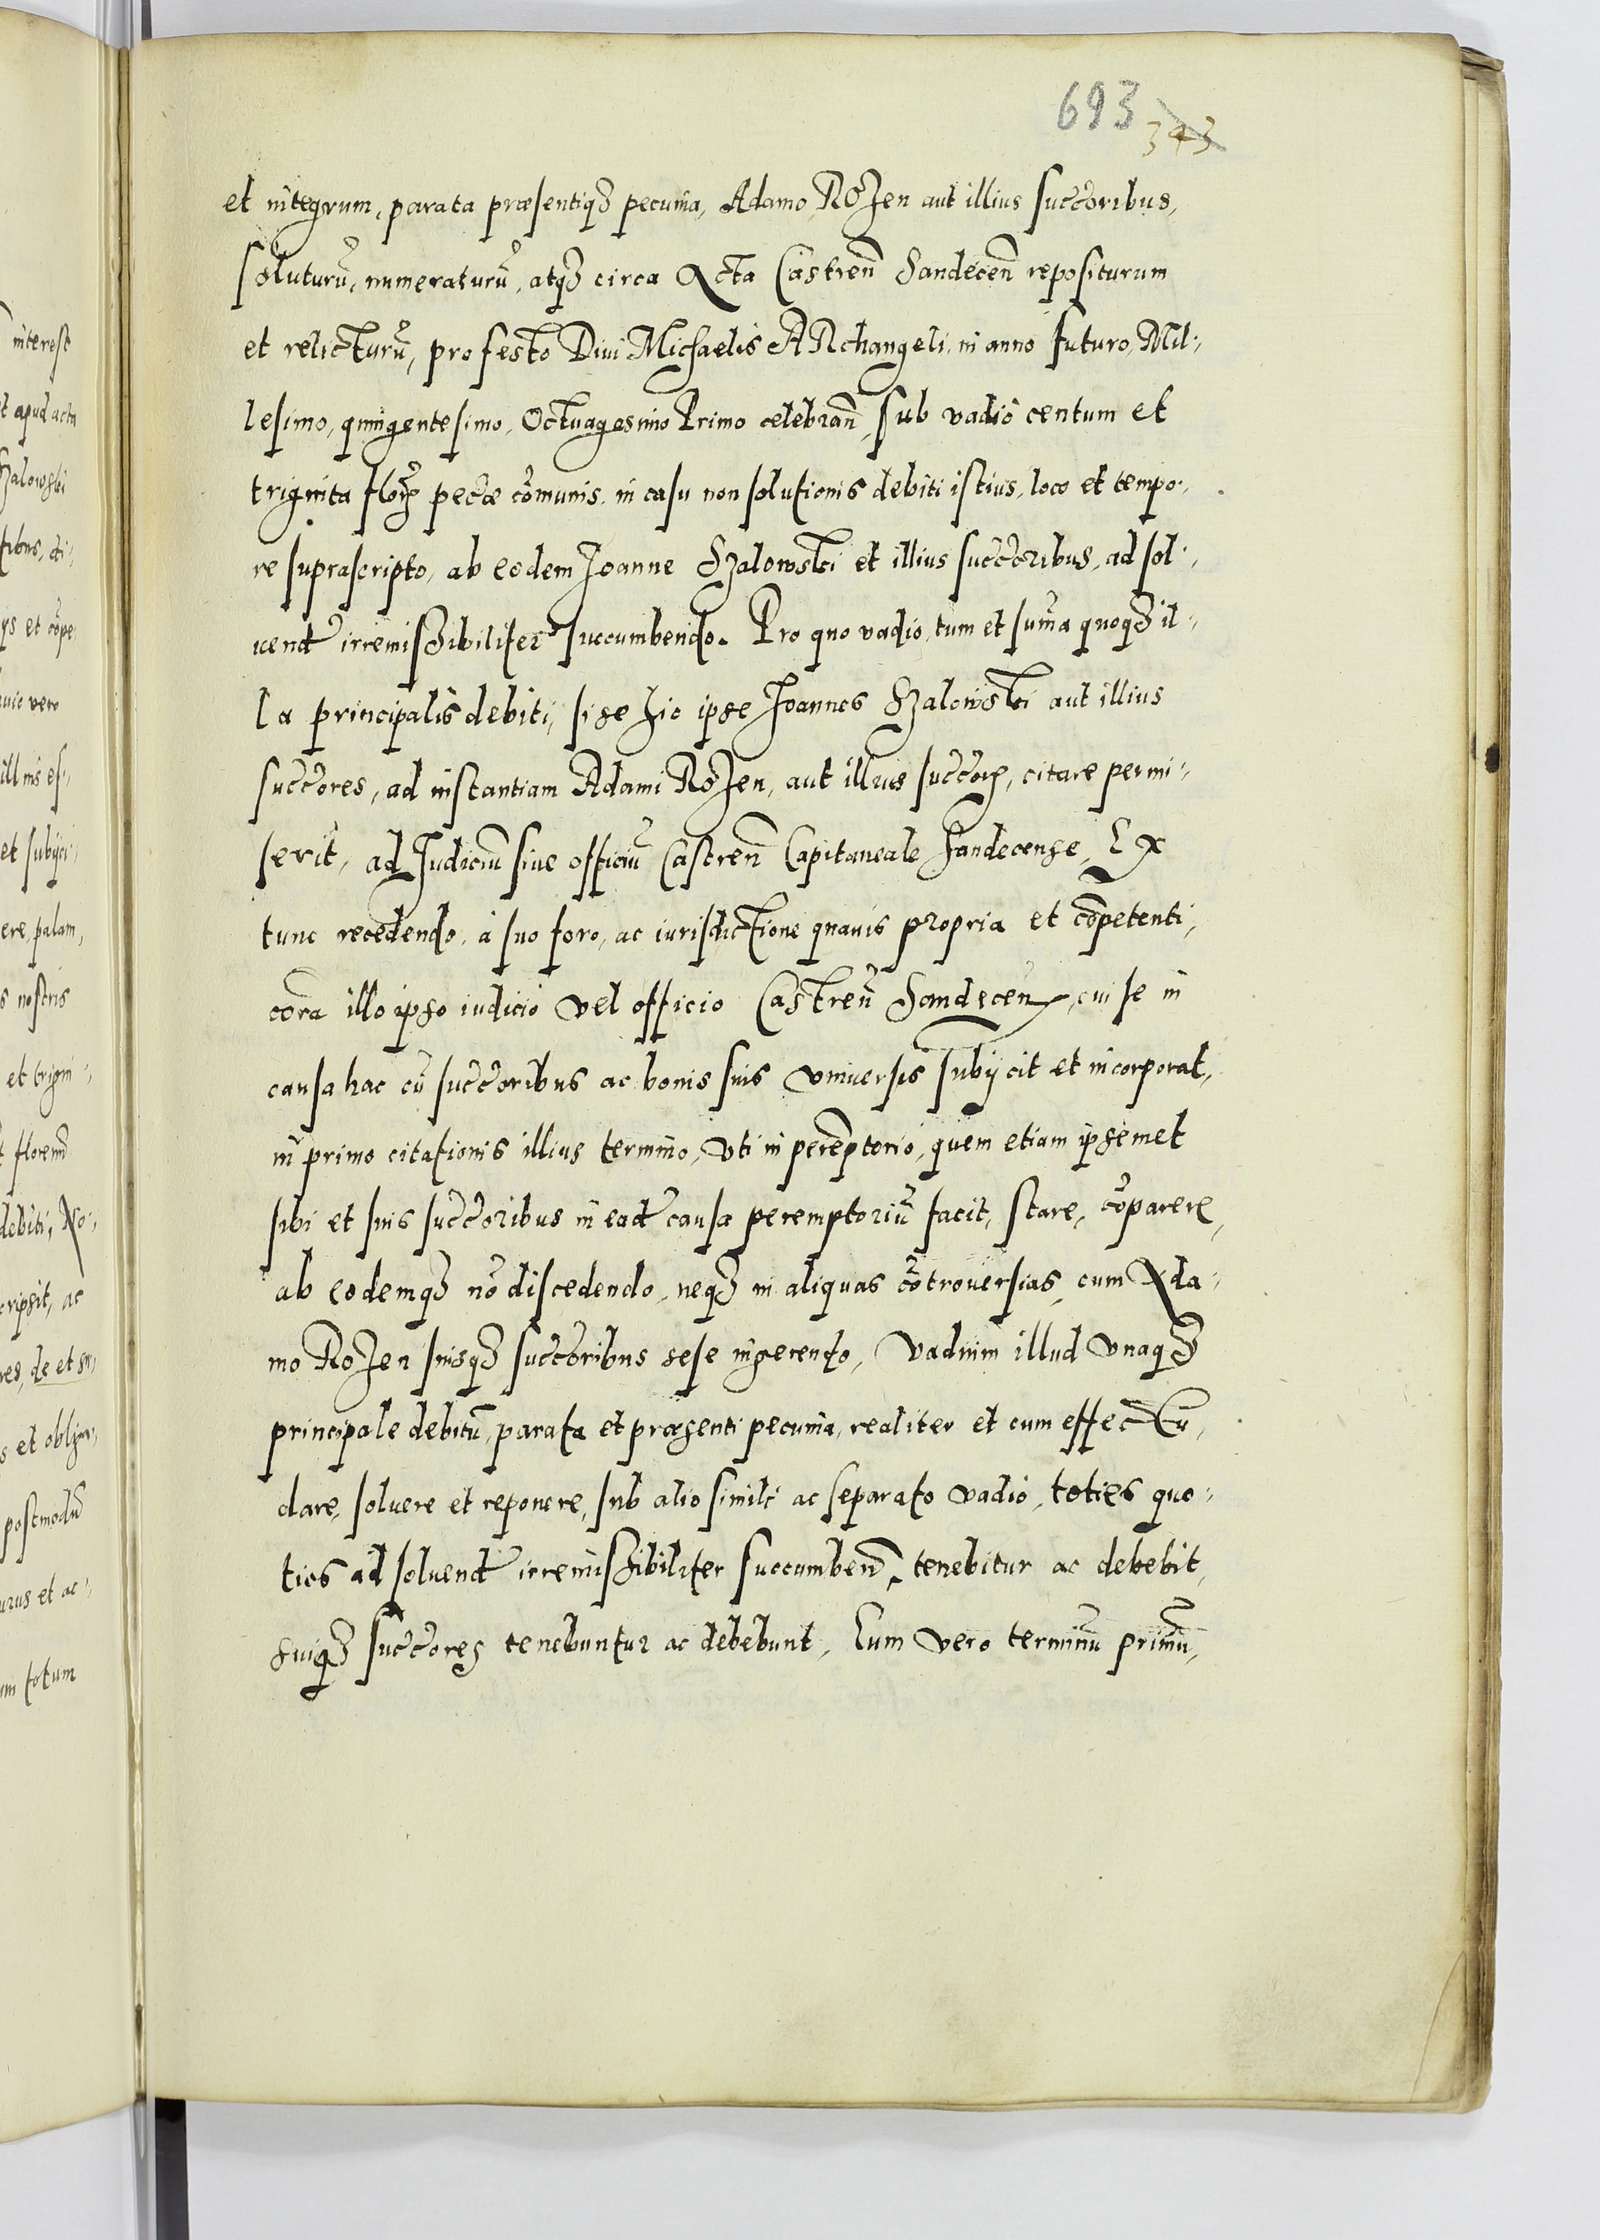 693
343
et integrum, parata præsentiq3 pecunia, Adamo Rozen aut illius succ̃oribus,
soluturũ, numeraturũ, atq3 circa Acta Castreñ Sandeceñ repositurum
et relicturũ, pro festo Diui Michaelis ARchangeli, in anno futuro, Mil:,
lesimo, quingentesimo, Octuagesimo Primo celebrañ, sub vadio centum et
triginta floꝝ pecc̃æ cõmunis, in casu non solutionis debiti istius, loco et tempo:,
re suprascripto, ab eodem Joanne Szalowski et illius succ̃oribus, ad sol:,
uend̃ irremissibiliter succumbendo. Pro quo vadio, tum et sum̃a quoq3 il:,
la principalis debiti, si se hic ipse Joannes Szalowski aut illius
succ̃ores, ad instantiam Adami Rozen, aut illius succ̃oꝝ, citare permi:,
serit, ad Judiciũ siue officiũ Castreñ Capitaneale Sandecense, Ex
tunc recedendo, à suo foro, ac iurisdictione quauis propria et cõpetenti,
corã illo ipso iudicio vel officio Castreñ Sandeceñ, cui se in
causa hac cũ succ̃oribus ac bonis suis vniuersis subijcit et incorporat,
in primo citationis illius termino, vti in perẽptorio, quem etiam ipsemet
sibi et suis succ̃oribus in ead̃ causa peremptoriũ facit, stare, cõparere,
ab eodemq3 nõ discedendo, neq3 in aliquas cõtrouersias, cum Ada:
mo Rozen suisq3 succ̃oribus sese ingerendo, Vadium illud vnaq3
principale debitũ, parata et præsenti pecunia, realiter et cum effectu,
dare, soluere et reponere, sub alio simili ac separato vadio, toties quo:,
ties ad soluend̃ irremissibiliter succumbeñ, tenebitur ac debebit,
suiq3 succ̃ores tenebuntur ac debebunt, Eum vero terminũ primũ,
interest
et apud acta
Szalowski
et cõpe
vero
et subijci:,
ere, palam,
s nostris
et trigin:,
debiti, No:,
cripsit, ac
res, de et su,
postmodũ
urus et ac:,
um totum